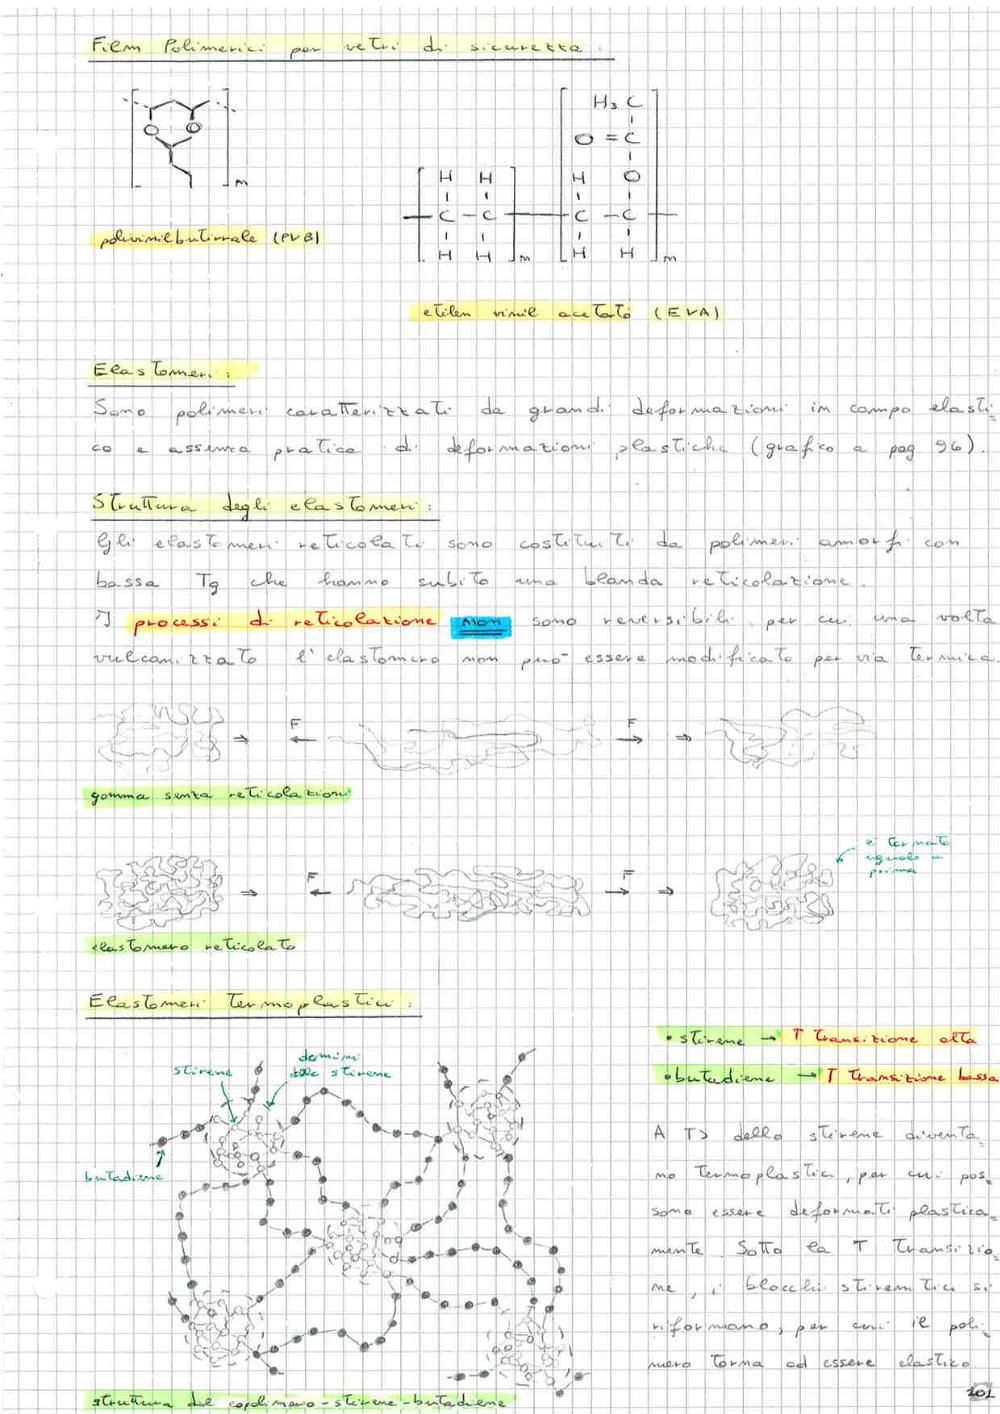 Film Polimerici per vetri di sicurezza :
H₃ C
O = C
O O
H H H O
m
— C — C — C — C —
polivinilbutirrale (PVB)
H H m H H m
etilen vinil acetato (EVA)
Elastomeri :
Sono polimeri caratterizzati da grandi deformazioni in campo elasti-
co e assenza pratica di deformazioni plastiche (grafico a pag 96).
Struttura degli elastomeri :
Gli elastomeri reticolati sono costituiti da polimeri amorfi con
bassa Tg che hanno subito una blanda reticolazione.
I processi di reticolazione non sono reversibili, per cui una volta
vulcanizzato l'elastomero non può essere modificato per via termica.
F F
gomma senza reticolazioni
è tornato
uguale a
prima
F F
elastomero reticolato
Elastomeri Termoplastici :
• stirene → T transizione alta
• butadiene → T Transizione bassa
domini
stirene dello stirene
butadiene
A T> dello stirene diventa-
no termoplastici, per cui pos-
sono essere deformati plastica-
mente. Sotto la T transizio-
ne, i blocchi stirenitici si
riformano, per cui il poli-
mero torna ad essere elastico
struttura del copolimero-stirene-butadiene
101